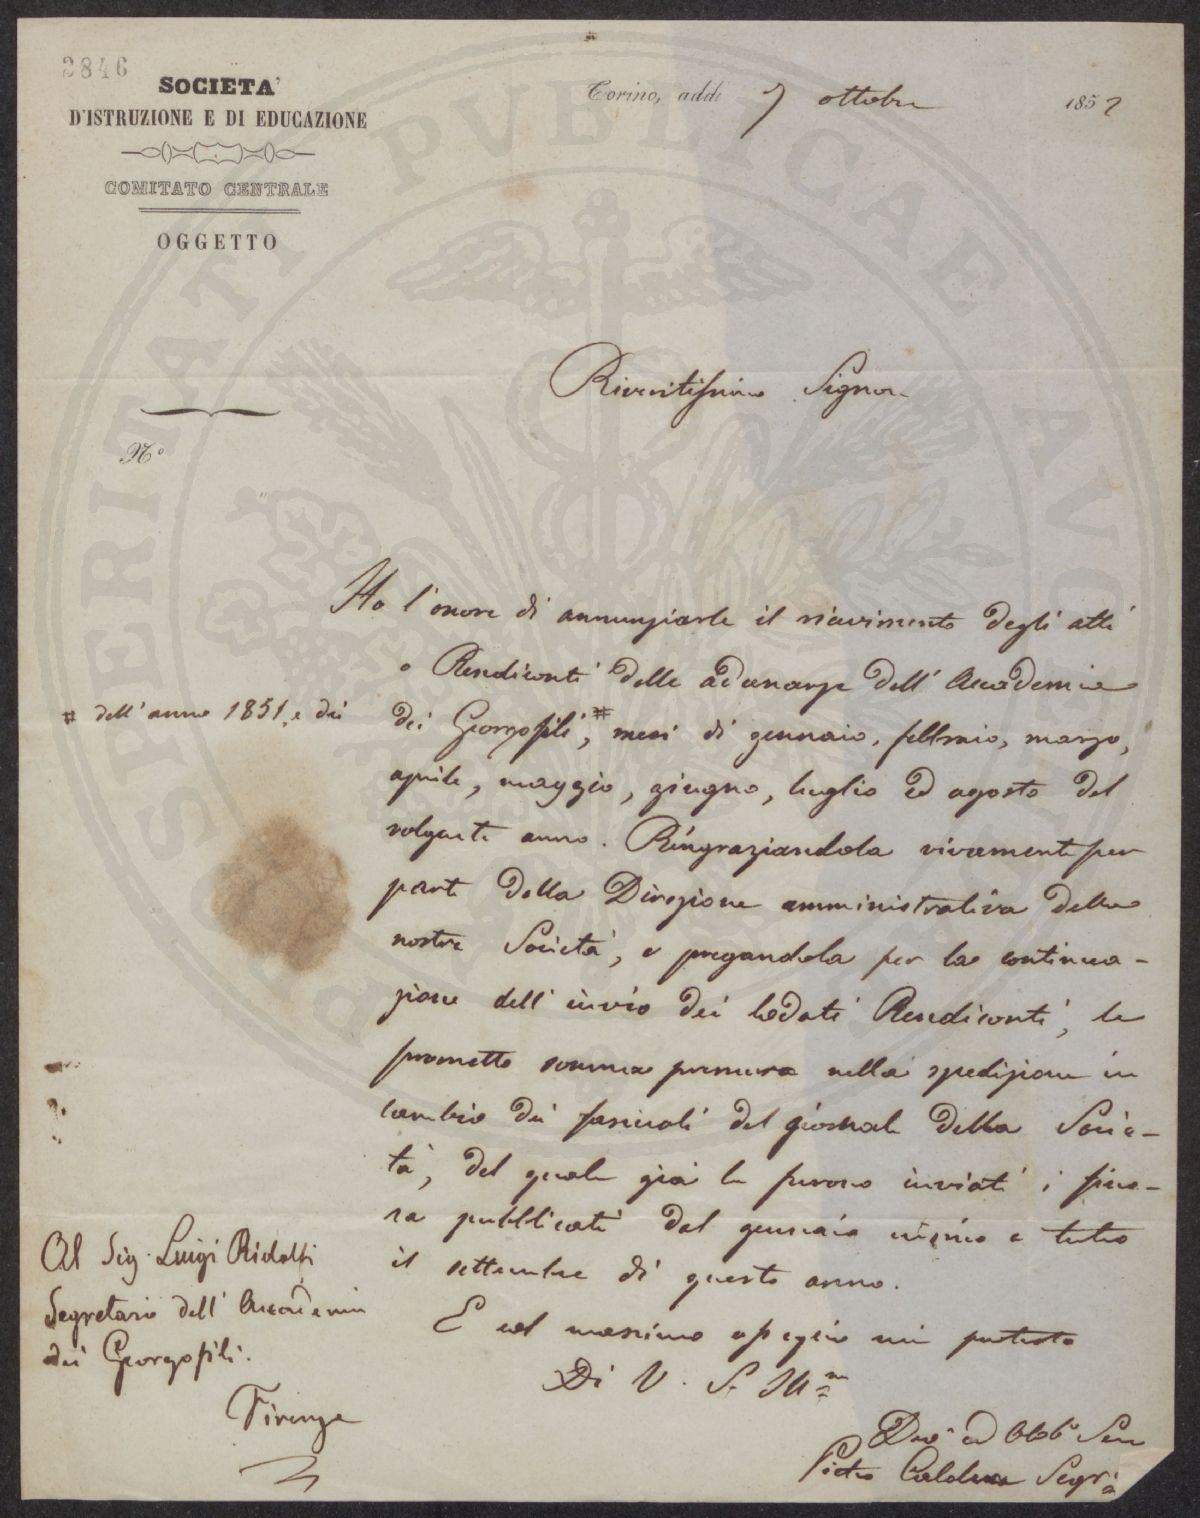 2846
SOCIETA'
D'ISTRUZIONE E DI EDUCAZIONE
COMITATO CENTRALE
OGGETTO
Torino, addì 7 ottobre 1852
Riveritissimo Signore
N.º
Ho l'onore di annunziarle il ricevimento degli atti
o Rendiconti delle adunanze dell'Accademia
# dell'anno 1851, e dei
dei Georgofili, # mesi di gennaio, febbraio, marzo,
aprile, maggio, giugno, luglio ed agosto del
volgente anno. Ringraziandola vivamente per
parte della Direzione amministrativa della
nostra Società, e pregandola per la continua-
zione dell'invio dei lodati Rendiconti, le
prometto somma premura nella spedizione in
cambio dei fascicoli del giornale della Socie-
tà, del quale già le furono inviati i fino-
ra pubblicati dal gennaio a tutto
il settembre di questo anno.
E col massimo ossequio mi protesto
Di V. S. Ill.ma
Dev.º ed Obb.º Serv
Pietro Segr.º
Al Sig. Luigi Ridolfi
Segretario dell'Accademia
dei Georgofili.
Firenze
SPERITATI PVBLICAE AVG